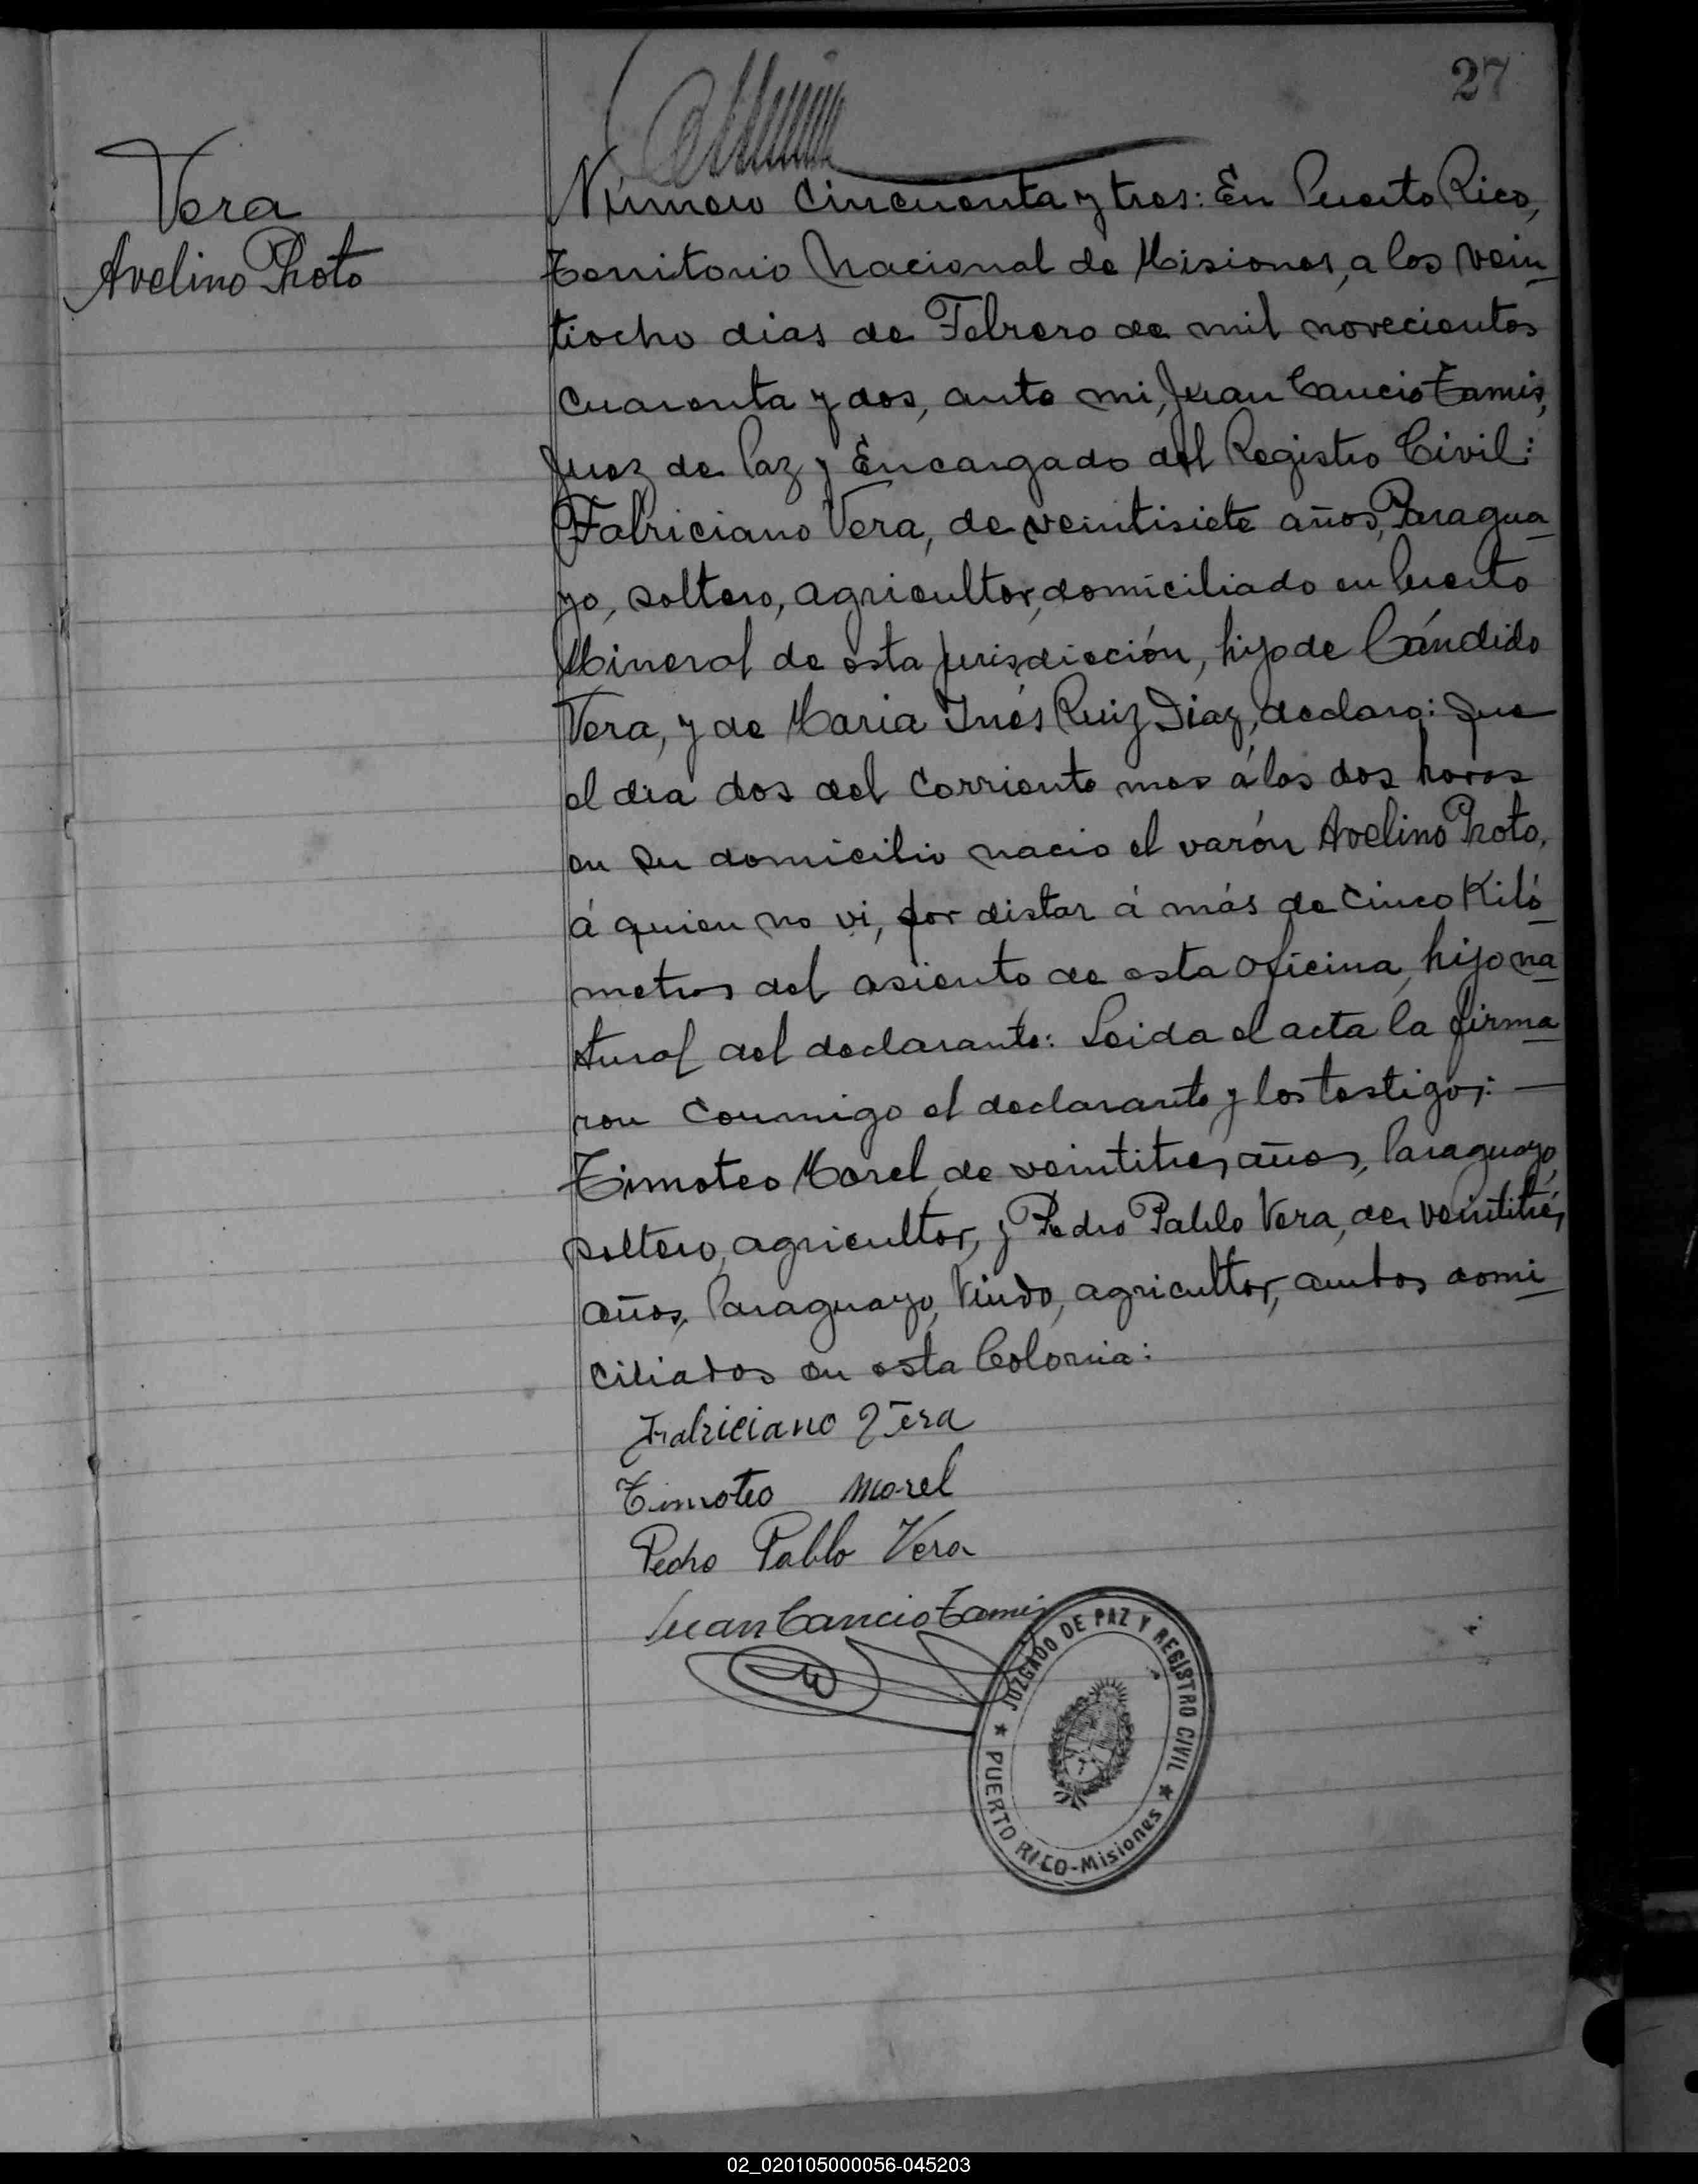 27
Vera
Avelino Photo
Número Cincuenta y tres: En Puerto Rico,
Territorio Nacional de Misiones, a los vein
tiocho dias de Febrero de mil novecientos
cuarenta y dos, ante mi, Juan Cancio Tamis,
Juez de Paz y Encargado del Registro Civil:
Fabriciano Vera, de veintisiete años, Paragua
yo, soltero, agricultor, domiciliado en Puerto
Mineral de esta jurisdicción, hijo de Cándido
Vera, y de Maria Inés Ruiz Diaz, declaro: Que
el dia dos del corriente mes á las dos horas
en su domicilio nacio el varón Avelino Photo,
á quien no vi, por distar á más de cinco Kiló
metros del asiento de esta oficina, hijo na
tural del declarante: Leida el acta la firma
ron conmigo el declarante y los testigos:
Timoteo Morel, de veintitres años, Paraguayo,
soltero, agricultor, y Pedro Pablo Vera, de veintitrés
años, Paraguayo, Viudo, agricultor, ambos domi
ciliados en esta Colonia:
Fabriciano Vera
Timoteo Morel
Pedro Pablo Vera
Juan Cancio Tamis
JUZGADO DE PAZ Y REGISTRO CIVIL
PUERTO RICO-Misiones
02_020105000056-045203